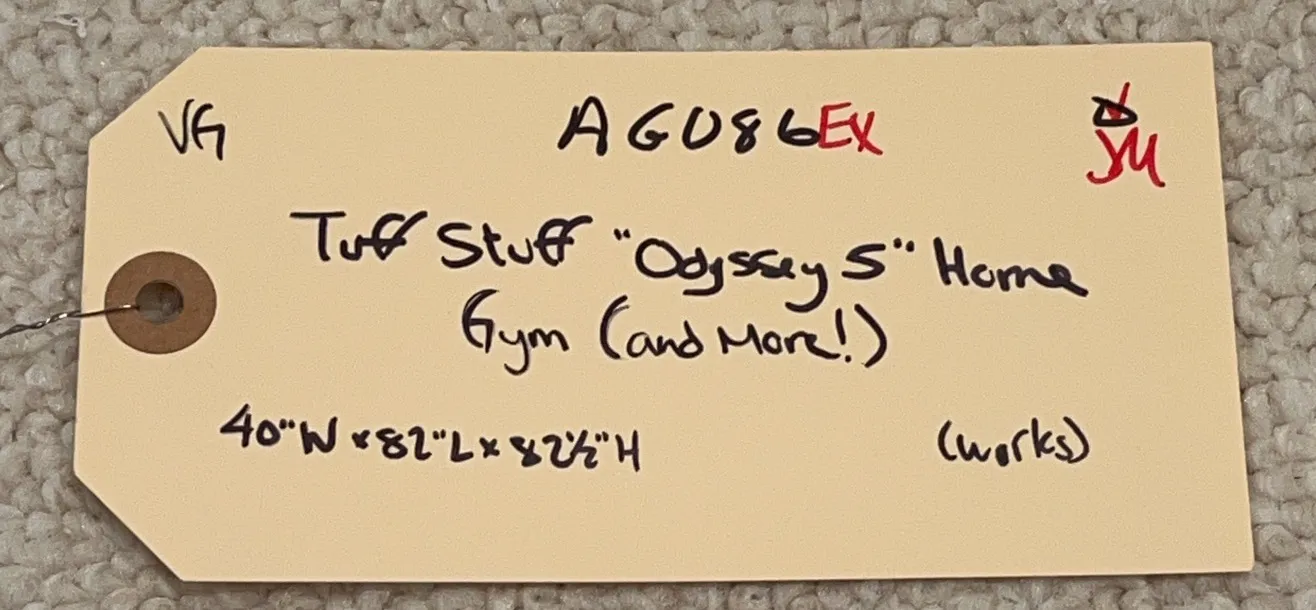 VG AGU86EX
JM
Tuff Stuff "Odyssey 5" Home
Gym (and More!)
40"W x 82"L x 82½"H (works)